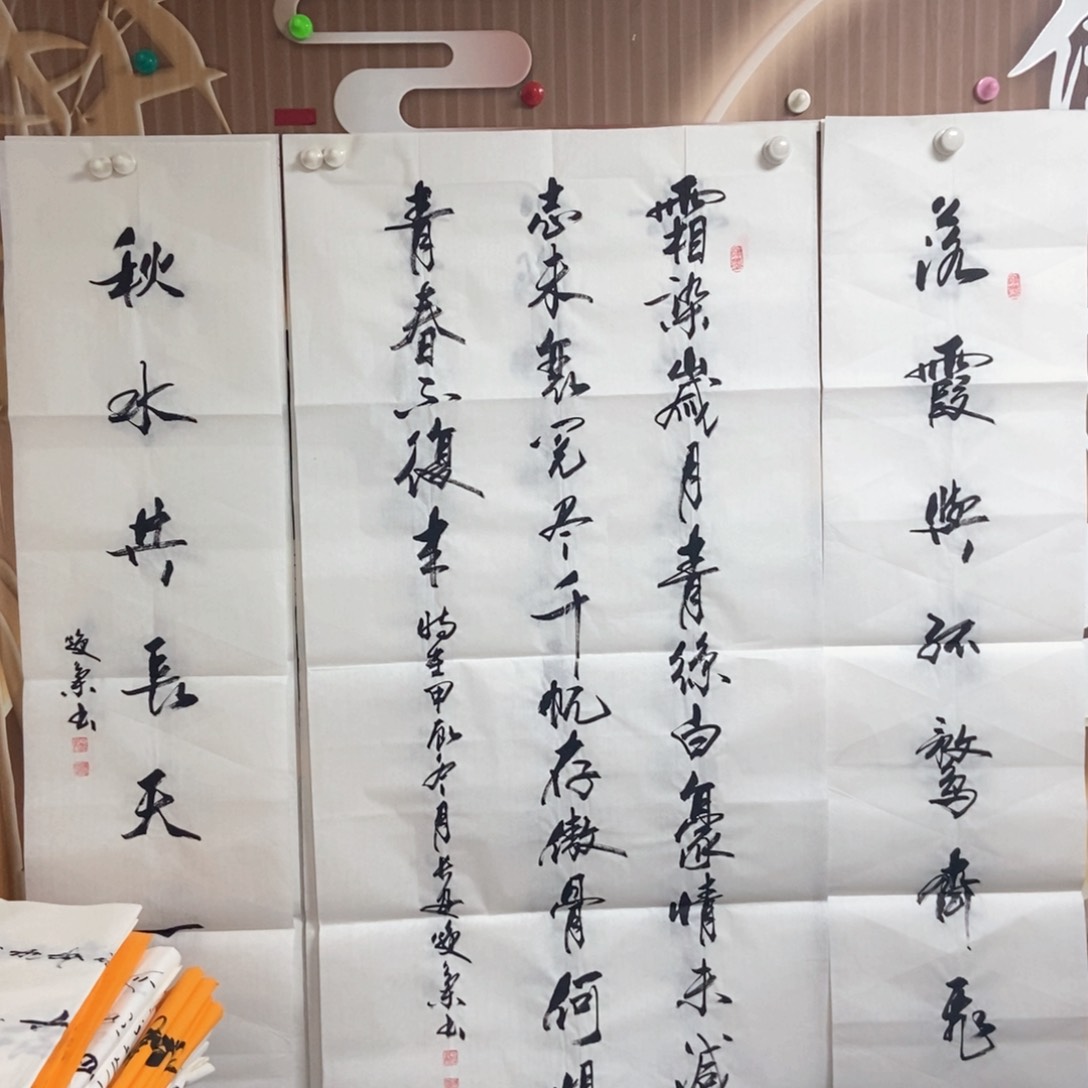 落霞與孤鶩齊飛
霜染歲月青絲白豪情未減
志未衰閱尽千帆存傲骨何
青春不復来時在甲辰冬月長安書
秋水共長天一
書